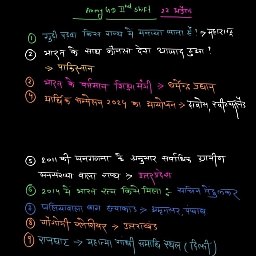 IInd Shift 22
① गुड़ी पड़वा किस राज्य में मनाया जाता है? → महाराष्ट्र
② भारत के साथ कौनसा देश आजाद हुआ?
→ पाकिस्तान
③ भारत के वर्तमान शिक्षा मंत्री → धर्मेन्द्र प्रधान
④ आर्थिक सम्मेलन 2024 का आयोजन →
⑤ 2011 की जनगणना के अनुसार सर्वाधिक ग्रामीण
जनसंख्या वाला राज्य → उत्तरप्रदेश
⑥ 2014 में भारत रत्न किसे मिला: सचिन तेंदुलकर
⑦ जलियावाला बाग हत्याकांड → अमृतसर, पंजाब
⑧ गंगोत्री ग्लेशियर → उत्तराखंड
⑨ राजघाट → महात्मा गांधी समाधि स्थल (दिल्ली)